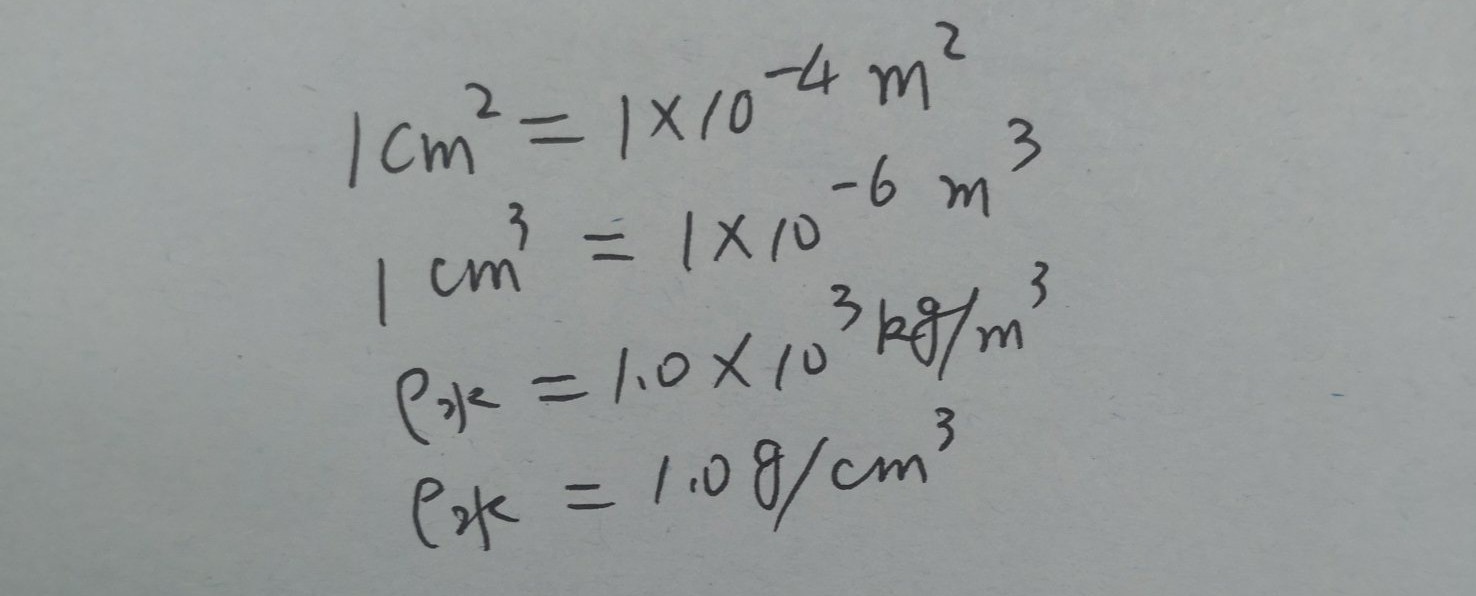 1cm² = 1×10⁻⁴ m²
1 cm³ = 1×10⁻⁶ m³
ρ水 = 1.0×10³ kg/m³
ρ水 = 1.0g/cm³